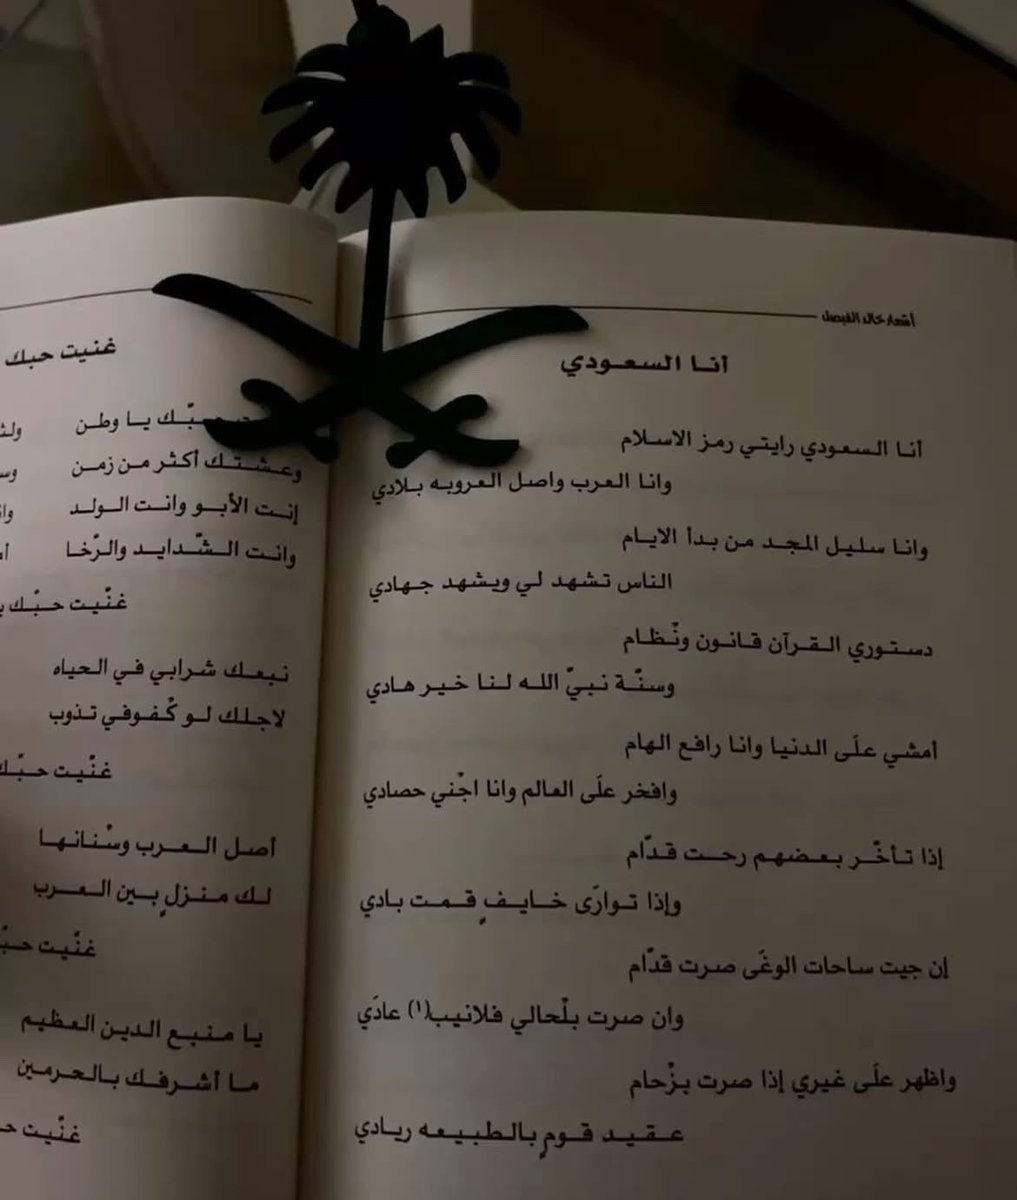 أشعار خالد الفيصل
أنا السعودي
أنا السعودي رايتي رمز الاسلام
وانا العرب واصل العروبه بلادي
وانا سليل المجد من بدأ الايام
الناس تشهد لي ويشهد جهادي
دستوري القرآن قانون ونْظام
وسنّة نبيّ الله لنا خير هادي
أمشي علَى الدنيا وانا رافع الهام
وافخر علَى العالم وانا اجْني حصادي
إذا تأخّر بعضهم رحت قدّام
وإذا توارَى خايفٍ قمت بادي
إن جيت ساحات الوغَى صرت قدّام
وان صرت بلْحالي فلانيب(١) عادَي
واظهر علَى غيري إذا صرت بزْحام
عقيد قومٍ بالطبيعه ريادي
غنيت حبك
حبّك يا وطن
وعشتك أكثر من زمن
إنت الأبو وانت الولد
وانت الشّدايد والرّخا
غنّيت حبّك
نبعك شرابي في الحياه
لاجلك لو كْفوفي تذوب
غنّيت حبّك
أصل العرب وسْنانها
لك منزلٍ بين العرب
غنّيت
يا منبع الدين العظيم
ما أشرفك بالحرمين
غنّيت